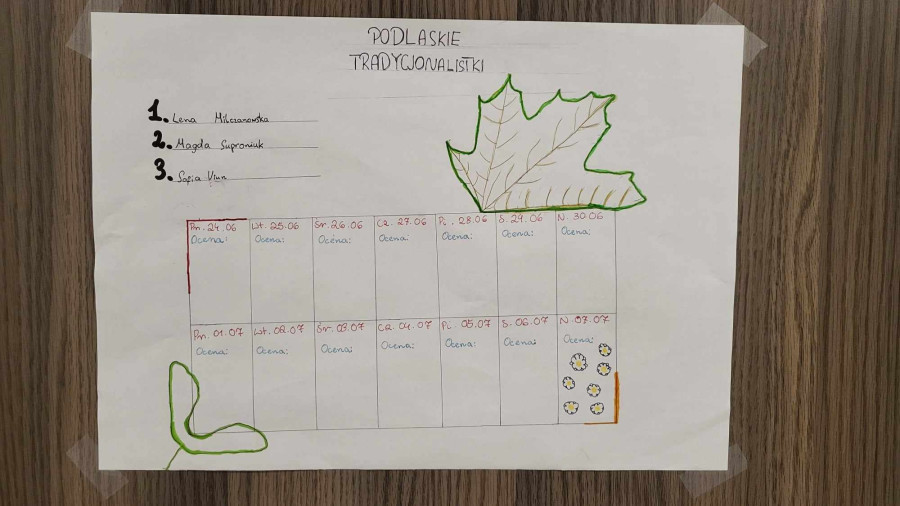 PODLASKIE
TRADYCJONALISTKI
1. Lena Milczanowska
2. Magda Suproniuk
3. Sofia Viun
Pn. 24.06 Wt. 25.06 Śr. 26.06 Cz. 27.06 Pt. 28.06 S. 29.06 N. 30.06
Ocena: Ocena: Ocena: Ocena: Ocena: Ocena: Ocena:
Pn. 01.07 Wt. 02.07 Śr. 03.07 Cz. 04.07 Pt. 05.07 S. 06.07 N. 07.07
Ocena: Ocena: Ocena: Ocena: Ocena: Ocena: Ocena: